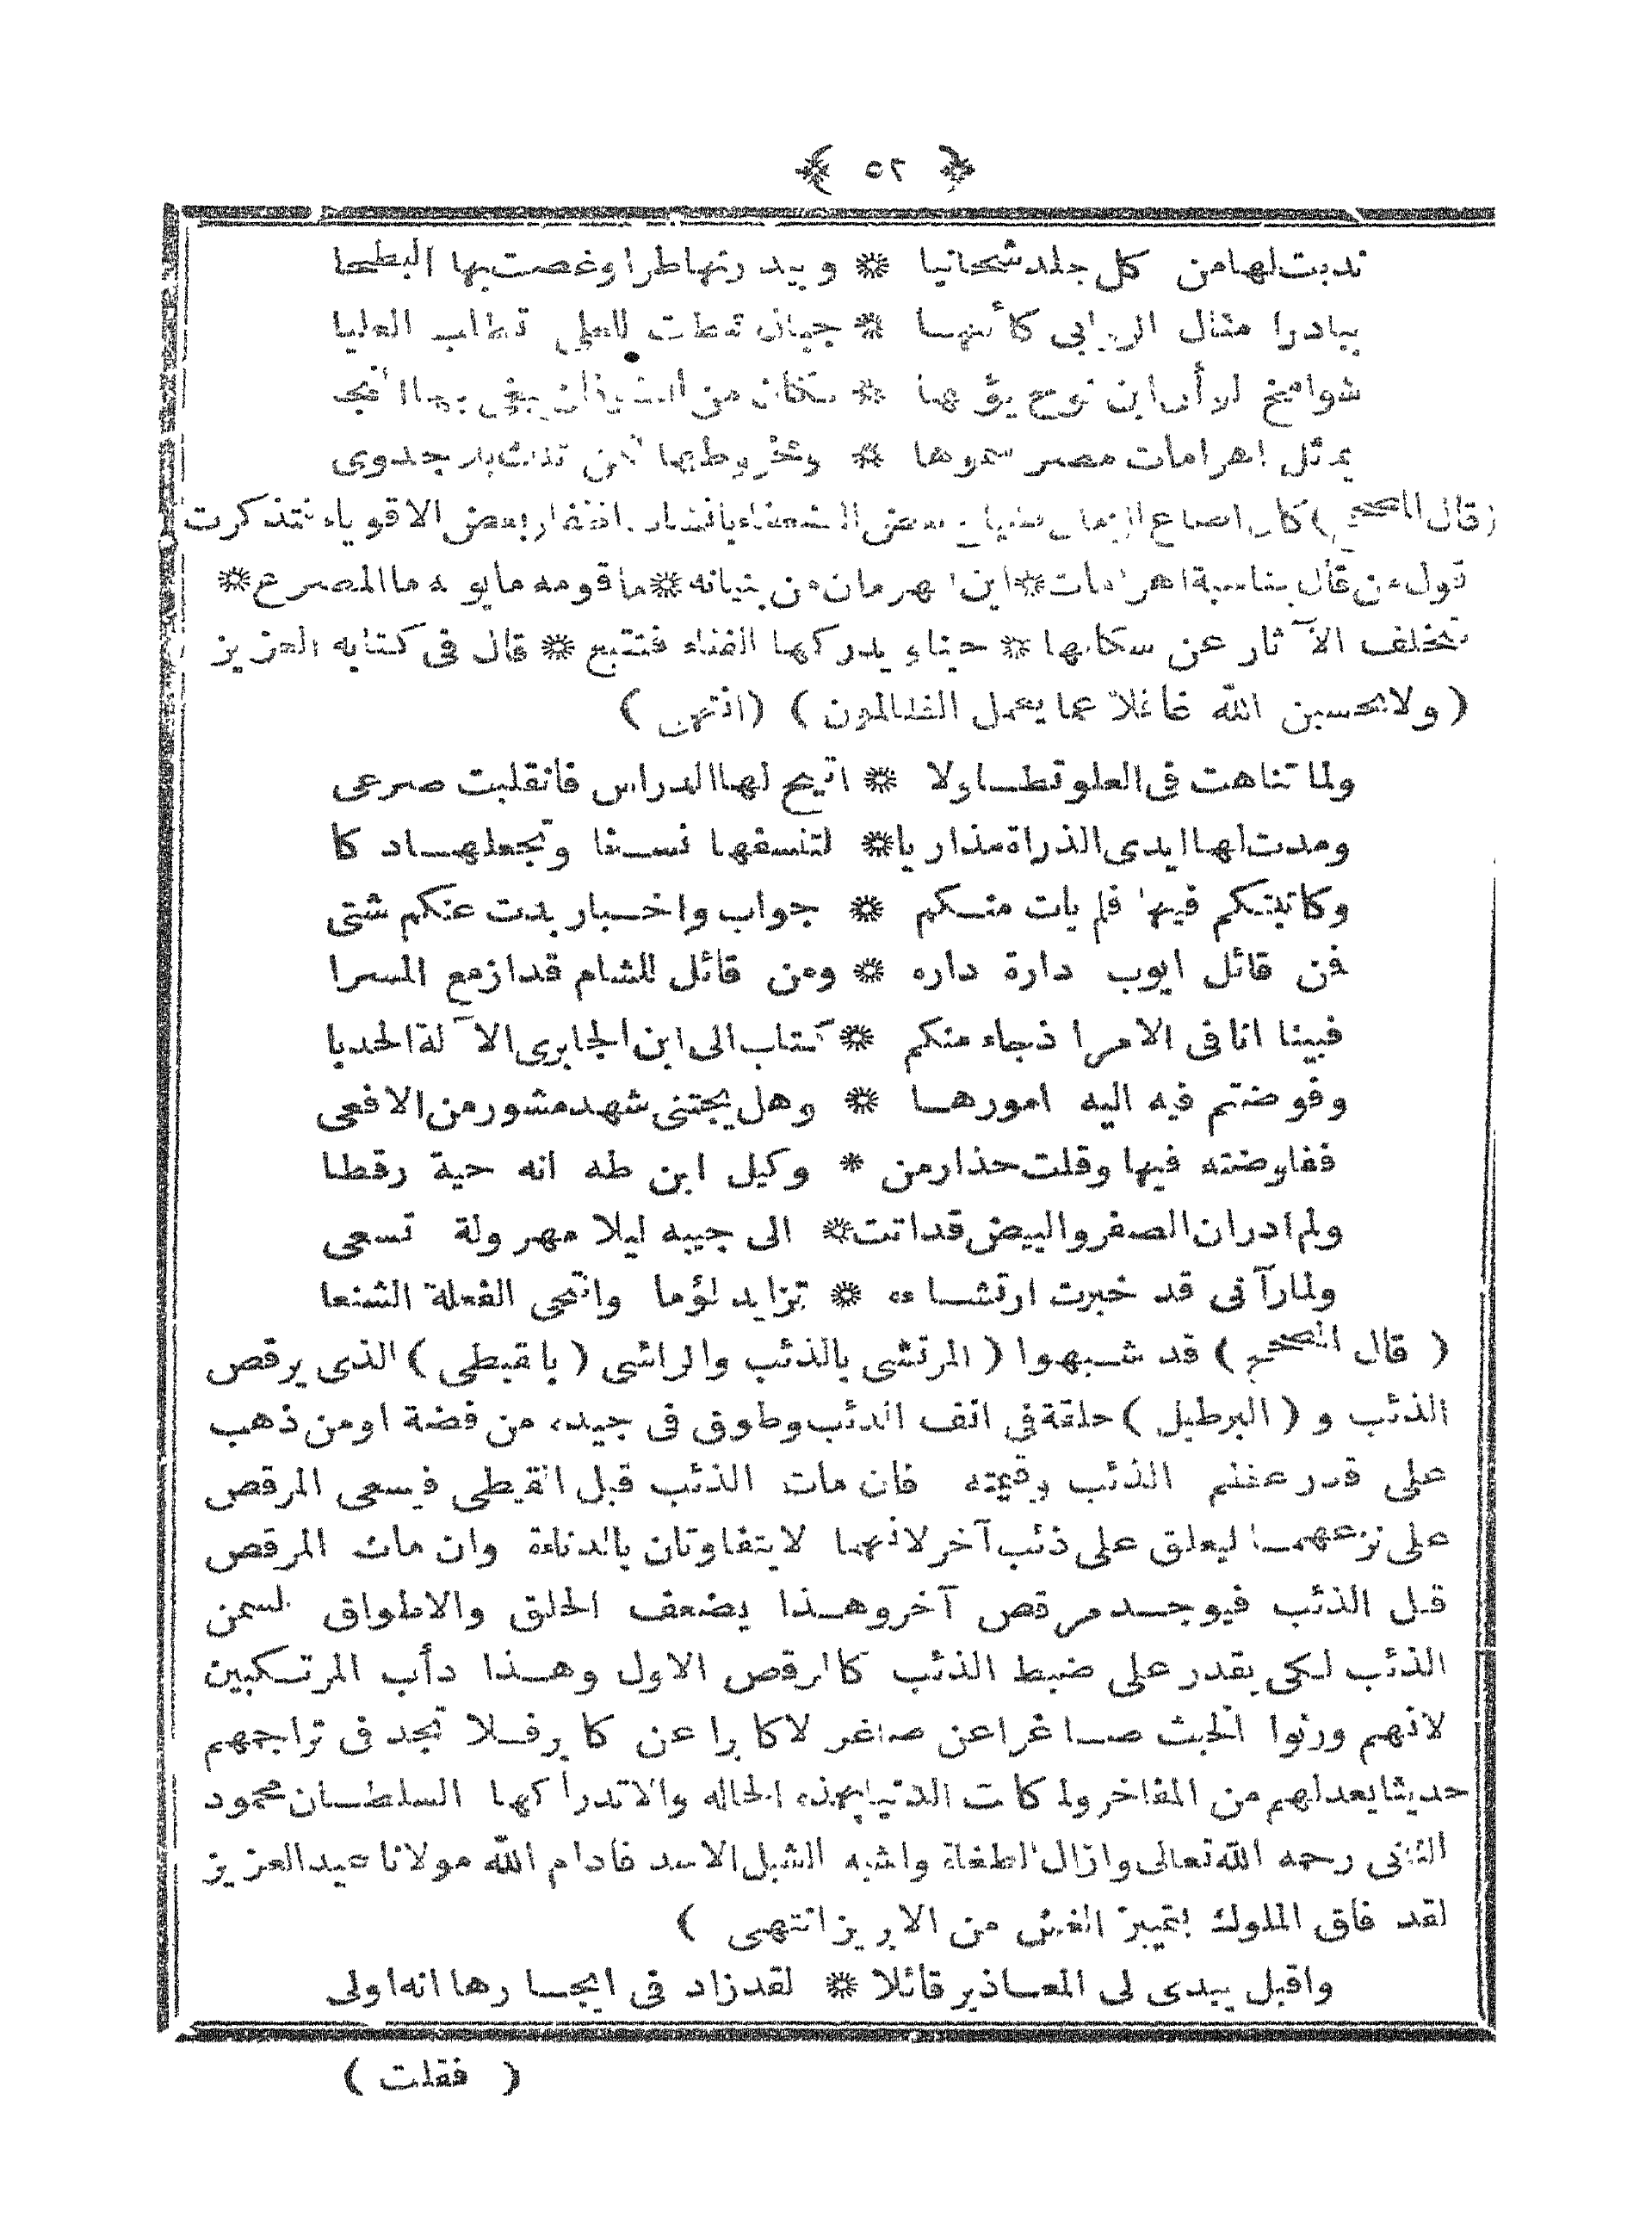 ﴿ ٥٢ ﴾
ندبت لها من كل جلد شحانيا ❋ وبيدرتها طرا وغصت بها البطحا
بيادرا مثال الروابى كأنها ❋ جبان تمطت للعلى تطلب العليا
شوامخ لو أن ابن نوح يؤمها ❋ من بها النجد
يمثل اهرامات مصر سموها ❋ ومخروطها لكن جدوى
(قال المصحح) كان بعض الضعفاء بعض الاقوياء فتذكرت
قول من قال بمناسبة اهرامات ❋ اين الهرمان من بنيانه ❋ ما قومه ما يومه ما المصرع ❋
تتخلف الآثار عن سكانها ❋ حينا ويدركها الفناء فتتبع ❋ قال فى كتابه العزيز
(ولا تحسبن الله غافلا عما يعمل الظالمون) (انتهى)
ولما تناهت فى العلو تطاولا ❋ اتيح لها الدراس فانقلبت صرعى
ومدت لها ايدى الذراة مذاريا ❋ لتنسفها نسفا وتجعلها دكا
وكاتبتكم فيها فلم يات منكم ❋ جواب واخبار بدت عنكم شتى
فمن قائل ايوب دارة داره ❋ ومن قائل للشام قد ازمع المسرا
فبينا انا فى الامر اذ جاء منكم ❋ كتاب الى ابن الجابرى الآلة الحديا
وفوضتم فيه اليه امورها ❋ وهل يجتنى شهد مشور من الافعى
ففاوضته فيها وقلت حذار من ❋ وكيل ابن طه انه حية رقطا
ولم ادر ان الصفر والبيض قد اتت ❋ الى جيبه ليلا مهرولة تسعى
ولما رآنى قد خبرت ارتشاءه ❋ تزايد لؤما وانتحى الفعلة الشنعا
(قال المصحح) قد شبهوا (المرتشى بالذئب والراشى (با قبطى) الذى يرقص
الذئب و (البرطيل) حلقة فى انف الذئب وطوق فى جيده من فضة او من ذهب
على قدر عظم الذئب وقيمته فان مات الذئب قبل القبطى فيسعى المرقص
على نزعهما ليعلق على ذئب آخر لانهما لا يتفاوتان بالدناءة وان مات المرقص
قبل الذئب فيوجد مرقص آخر وهذا يضعف الحلق والاطواق لسمن
الذئب لكى يقدر على ضبط الذئب كالمرقص الاول وهذا دأب المرتكبين
لانهم ورثوا الخبث صاغرا عن صاغر لا كابرا عن كابر فلا تجد فى تراجمهم
حديثا يعد لهم من المفاخر ولما كانت الدنيا بهذه الحاله والا تداركها السلطان محمود
الثانى رحمه الله تعالى وازال الطغاة واشبه الشبل الاسد فادام الله مولانا عبد العزيز
لقد فاق الملوك بتمييز الغش من الابريز انتهى)
واقبل يبدى لى المعاذير قائلا ❋ لقد زاد فى ايجارها انه اولى
(فقلت)